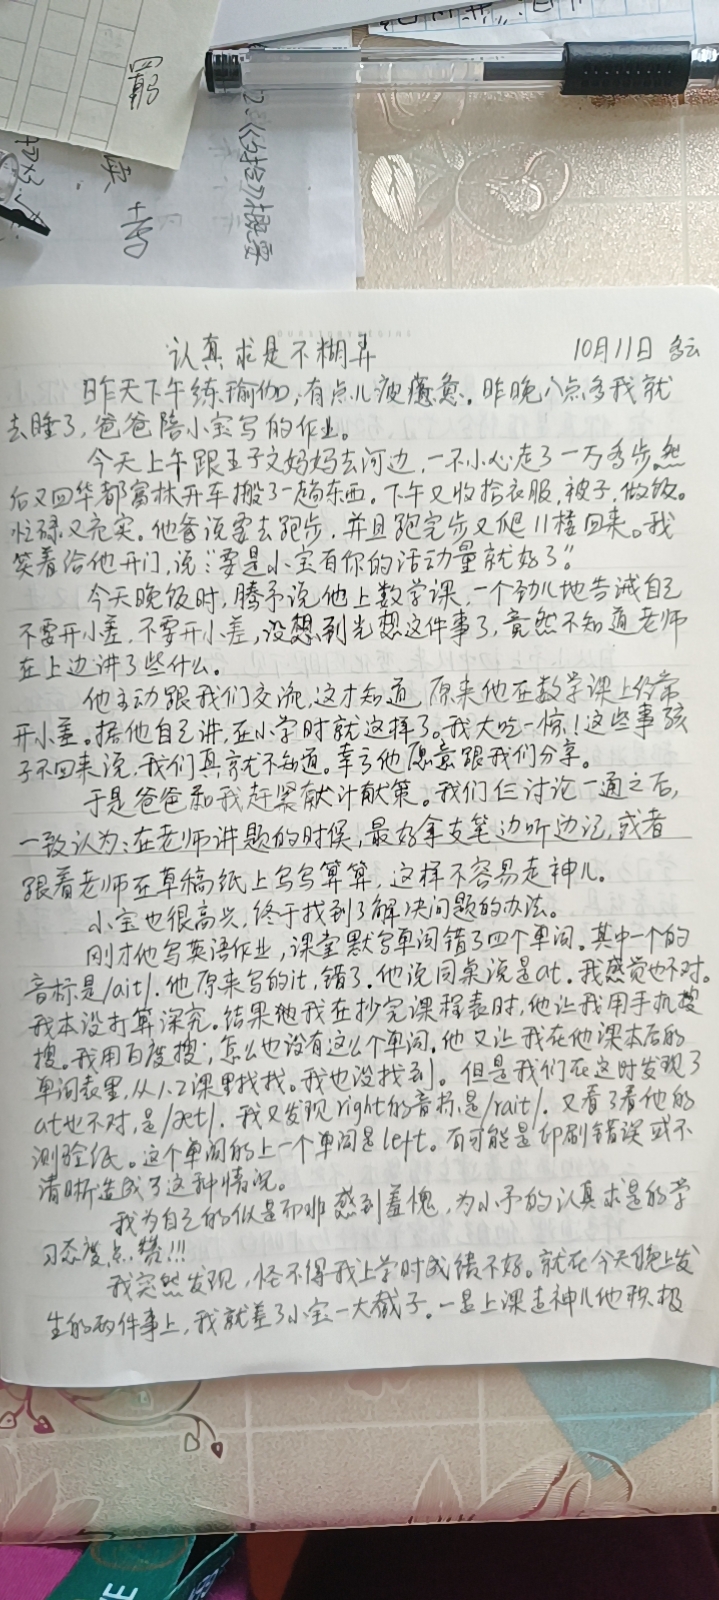 认真求是不糊弄 10月11日 多云
昨天下午练瑜伽,有点儿疲惫。昨晚八点多我就
去睡了,爸爸陪小宝写的作业。
今天上午跟王子文妈妈去河边,一不小心走了一万多步,然
后又回华都富林开车搬了一趟东西。下午又收拾衣服,被子,做饭。
忙碌又充实。他爸说要去跑步,并且跑完步又爬11楼回来。我
笑着给他开门,说:“要是小宝有你的活动量就好了。”
今天晚饭时,腾予说他上数学课,一个劲儿地告诫自己
不要开小差,不要开小差,没想到光想这件事了,竟然不知道老师
在上边讲了些什么。
他主动跟我们交流,这才知道,原来他在数学课上经常
开小差。据他自己讲,在小学时就这样了。我大吃一惊!这些事孩
子不回来说,我们真就不知道。幸亏他愿意跟我们分享。
于是爸爸和我赶紧献计献策。我们仨讨论一通之后,
一致认为:在老师讲题的时候,最好拿支笔边听边记,或者
跟着老师在草稿纸上写写算算,这样不容易走神儿。
小宝也很高兴,终于找到了解决问题的办法。
刚才他写英语作业,课堂默写单词错了四个单词。其中一个的
音标是/ait/.他原来写的it,错了.他说同桌说是at.我感觉也不对。
我本没打算深究。结果我在抄完课程表时,他让我用手机搜
搜。我用百度搜;怎么也没有这么个单词.他又让我在他课本后的
单词表里,从1.2课里找找。我也没找到。但是我们在这时发现了
at也不对,是/æt/.我又发现right的音标是/rait/.又看了看他的
测验纸。这个单词的上一个单词是left。有可能是印刷错误或不
清晰造成了这种情况。
我为自己的似是而非感到羞愧,为小予的认真求是的学
习态度点赞!!!
我突然发现,怪不得我上学时成绩不好。就在今天晚上发
生的两件事上,我就差了小宝一大截子。一是上课走神儿他积极